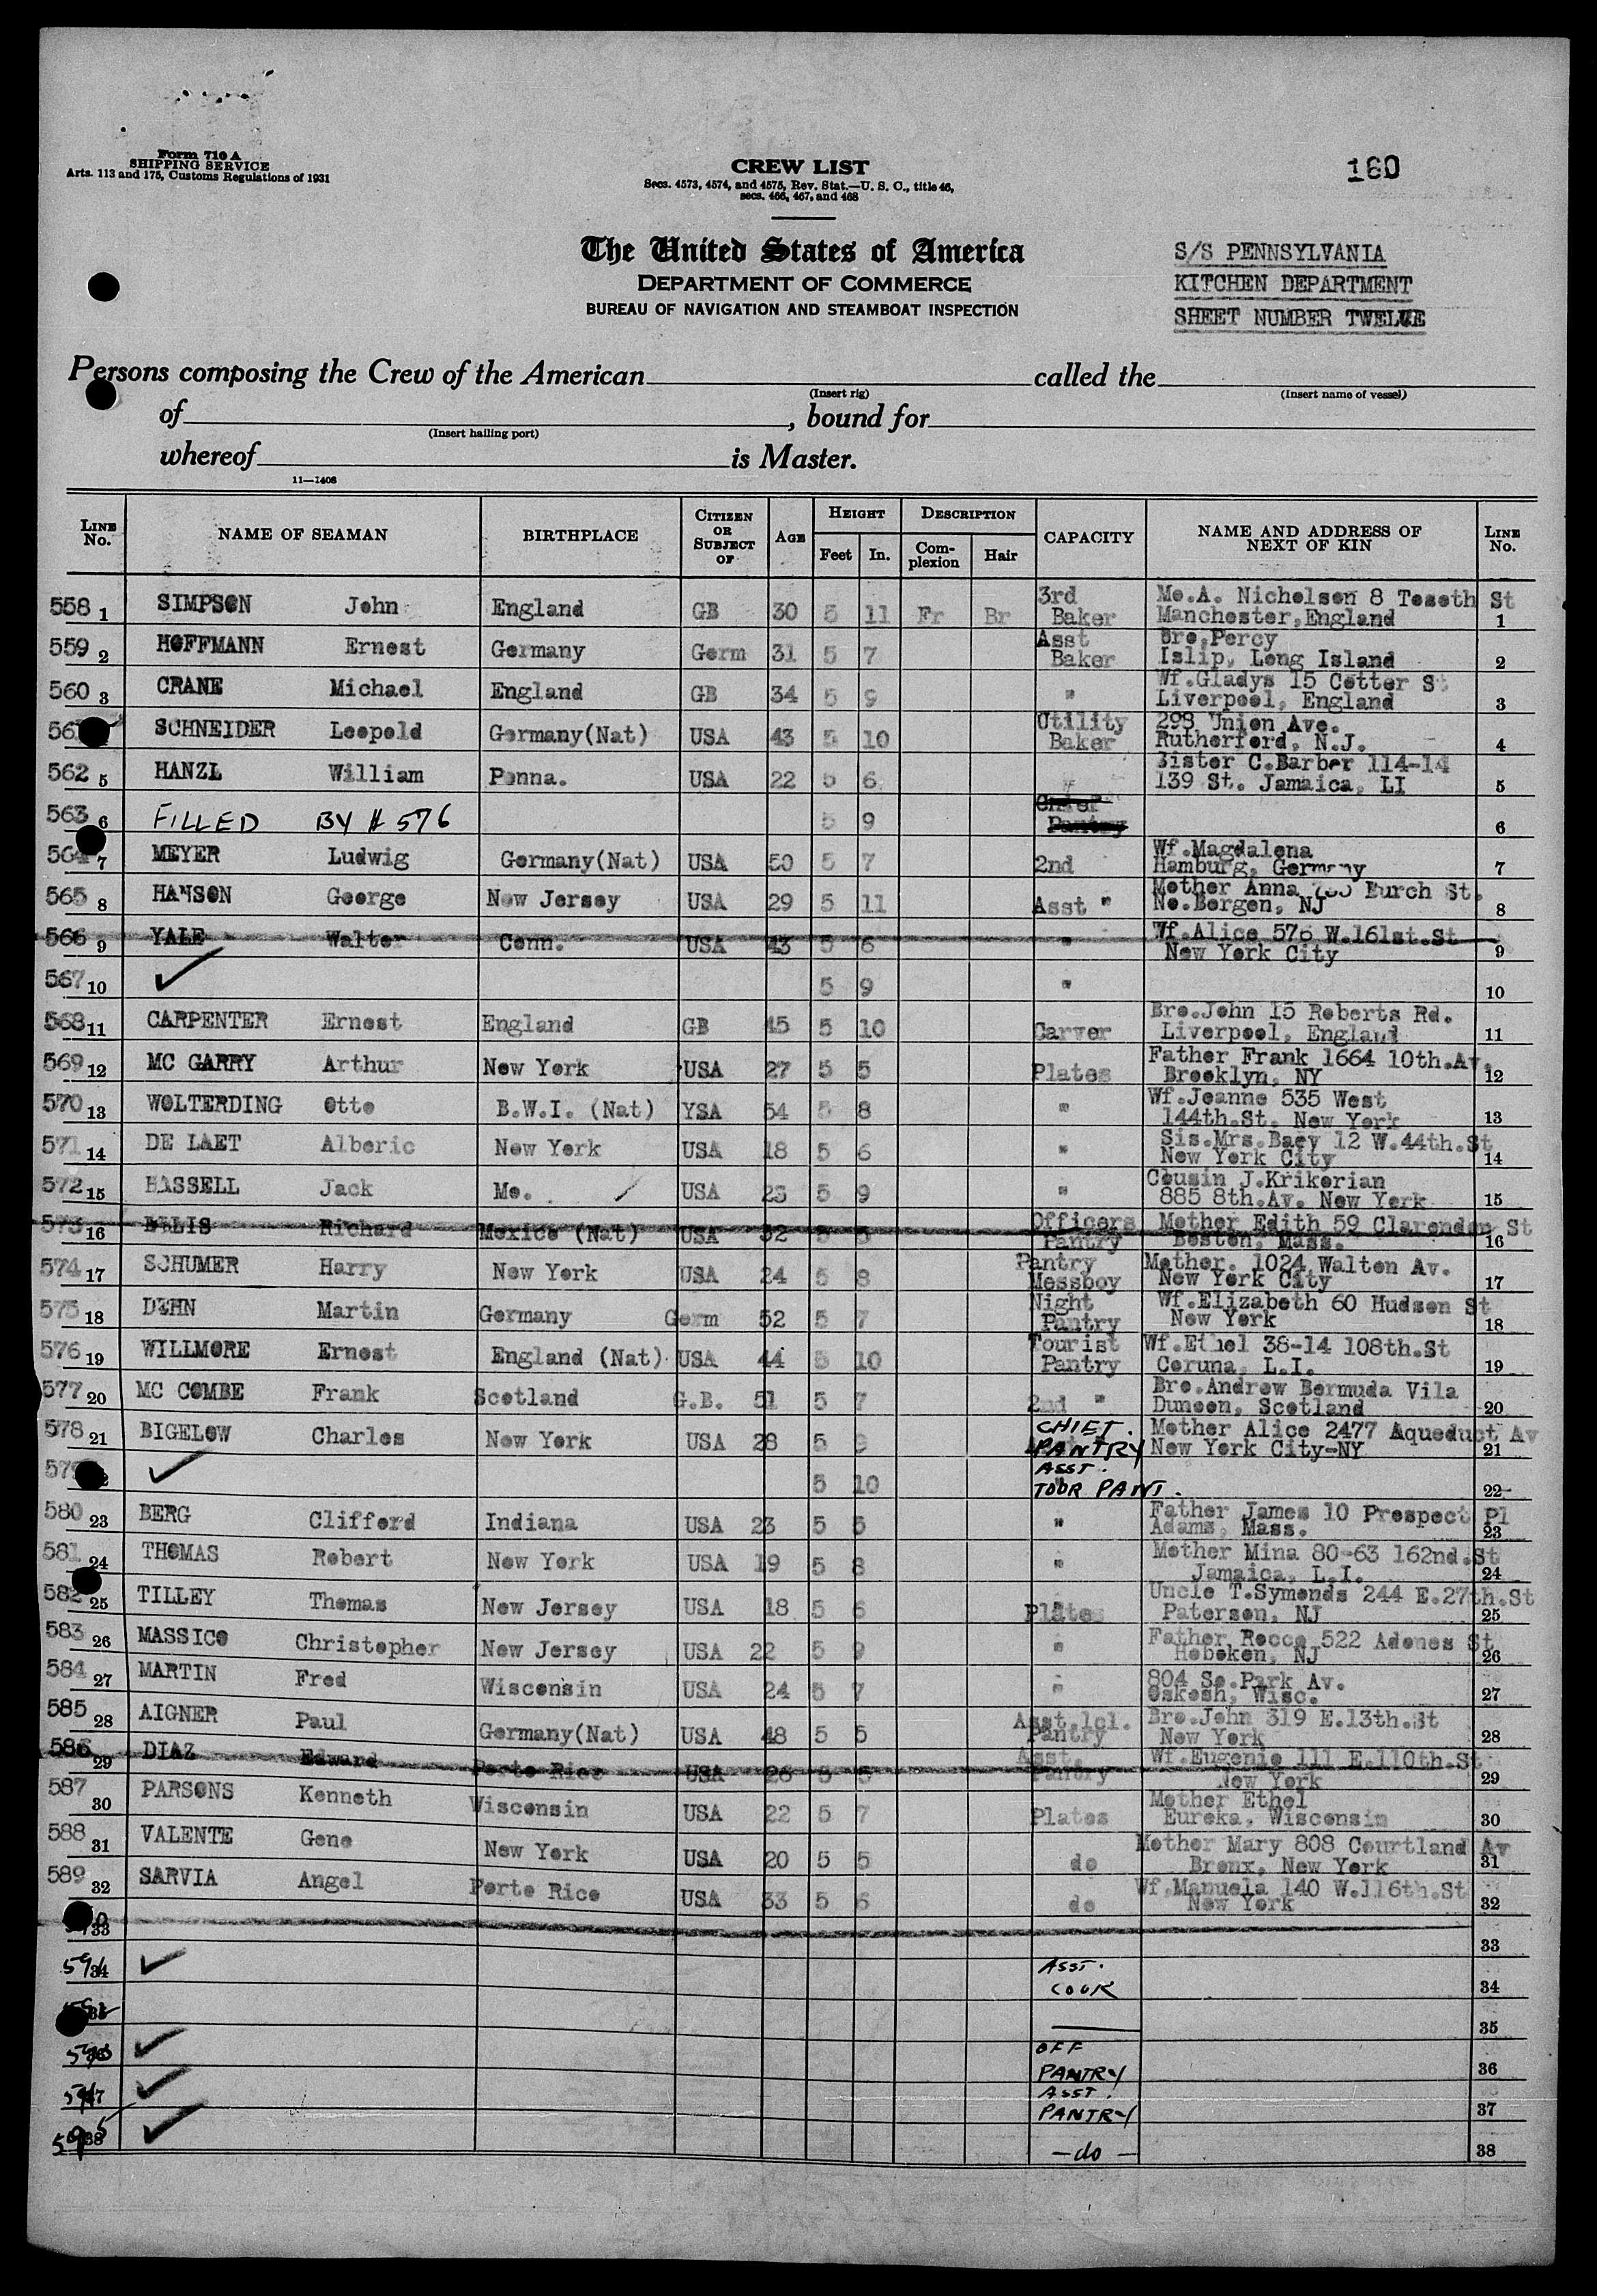 Form 710 A
SHIPPING SERVICE
Arts. 113 and 175, Customs Regulations of 1931
CREW LIST
Secs. 4573, 4574, and 4575, Rev. Stat.—U. S. C., title 46,
secs. 466, 467, and 468
160
The United States of America
DEPARTMENT OF COMMERCE
BUREAU OF NAVIGATION AND STEAMBOAT INSPECTION
S/S PENNSYLVANIA
KITCHEN DEPARTMENT
SHEET NUMBER TWELVE
Persons composing the Crew of the American called the
(Insert rig) (Insert name of vessel)
of , bound for
(Insert hailing port)
whereof is Master.
11—1408
LINE No. NAME OF SEAMAN BIRTHPLACE CITIZEN OR SUBJECT OF AGE HEIGHT Feet In. DESCRIPTION Complexion Hair CAPACITY NAME AND ADDRESS OF NEXT OF KIN LINE No.
558 1 SIMPSON John England GB 30 5 11 Fr Br 3rd Baker Mo.A. Nicholson 8 Toseth St Manchester,England 1
559 2 HOFFMANN Ernest Germany Germ 31 5 7 Asst Baker Bro,Percy Islip, Long Island 2
560 3 CRANE Michael England GB 34 5 9 " Wf.Gladys 15 Cotter St Liverpool, England 3
56 SCHNEIDER Leopold Germany(Nat) USA 43 5 10 Utility Baker 298 Union Ave. Rutherford, N.J. 4
562 5 HANZL William Penna. USA 22 5 6 " Sister C.Barber 114-14 139 St. Jamaica, LI 5
563 6 FILLED BY # 576 5 9 Chief Pantry 6
564 7 MEYER Ludwig Germany(Nat) USA 50 5 7 2nd Wf.Magdalena Hamburg, Germany 7
565 8 HANSON George New Jersey USA 29 5 11 Asst " Mother Anna Burch St. No.Bergen, NJ 8
566 9 YALE Walter Conn. USA 43 5 6 " Wf.Alice 576 W.161st.St New York City 9
567 10 ✓ 5 9 " 10
568 11 CARPENTER Ernest England GB 45 5 10 Carver Bro.John 15 Roberts Rd. Liverpool, England 11
569 12 MC GARRY Arthur New York USA 27 5 5 Plates Father Frank 1664 10th.Av. Brooklyn, NY 12
570 13 WOLTERDING Otto B.W.I. (Nat) YSA 54 5 8 " Wf.Jeanne 535 West 144th.St. New York 13
571 14 DE LAET Alberic New York USA 18 5 6 " Sis.Mrs.Baey 12 W.44th.St New York City 14
572 15 HASSELL Jack Mo. USA 23 5 9 " Cousin J.Krikorian 885 8th.Av. New York 15
573 16 ELLIS Richard Mexico (Nat) USA 52 5 5 Officers Pantry Mother Edith 59 Clarendon St Boston, Mass. 16
574 17 SCHUMER Harry New York USA 24 5 8 Pantry Messboy Mother. 1024 Walton Av. New York City 17
575 18 DEHN Martin Germany Germ 52 5 7 Night Pantry Wf.Elizabeth 60 Hudson St New York 18
576 19 WILLMORE Ernest England (Nat) USA 44 5 10 Tourist Pantry Wf.Ethel 38-14 108th.St Coruna, L.I. 19
577 20 MC COMBE Frank Scotland G.B. 51 5 7 2nd " Bro.Andrew Bermuda Vila Dunoon, Scotland 20
578 21 BIGELOW Charles New York USA 28 5 CHIEF. PANTRY Mother Alice 2477 Aqueduct Av New York City-NY 21
579 ✓ 5 10 ASST. TOUR PANT. 22
580 23 BERG Clifford Indiana USA 23 5 5 " Father James 10 Prospect Pl Adams, Mass. 23
581 24 THOMAS Robert New York USA 19 5 8 " Mother Mina 80-63 162nd.St Jamaica, L.I. 24
582 25 TILLEY Thomas New Jersey USA 18 5 6 Plates Uncle T.Symonds 244 E.27th.St Paterson, NJ 25
583 26 MASSICO Christopher New Jersey USA 22 5 9 " Father Rocco 522 Adones St Hoboken, NJ 26
584 27 MARTIN Fred Wisconsin USA 24 5 7 " 804 So.Park Av. Oskosh, Wisc. 27
585 28 AIGNER Paul Germany(Nat) USA 48 5 5 Asst.lcl. Pantry Bro.John 319 E.13th.St New York 28
586 29 DIAZ Edward Porto Rico USA 26 5 5 Asst. Pantry Wf.Eugenio 111 E.110th.St New York 29
587 30 PARSONS Kenneth Wisconsin USA 22 5 7 Plates Mother Ethel Eureka, Wisconsin 30
588 31 VALENTE Gene New York USA 20 5 5 do Mother Mary 808 Courtland Av Bronx, New York 31
589 32 SARVIA Angel Porto Rico USA 33 5 6 do Wf.Manuela 140 W.116th.St New York 32
33 33
34 ✓ ASST. COOK 34
35
✓ OFF PANTRY 36
✓ ASST. PANTRY 37
595 38 ✓ —do— 38